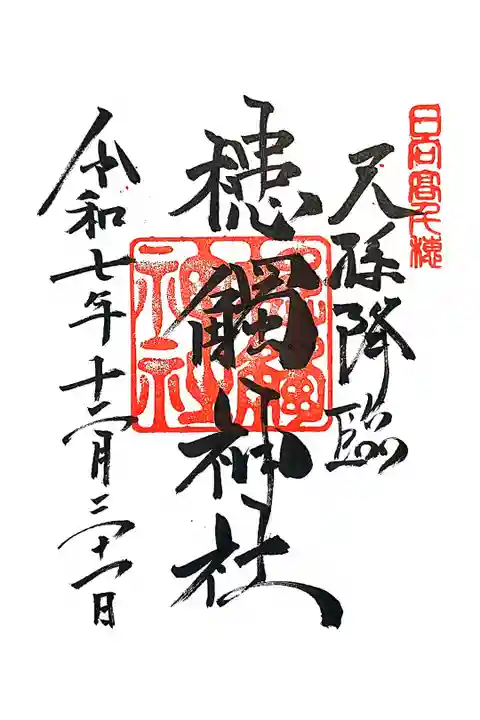 日向高千穂
天孫降臨
槵觸神社
令和七年十二月二十一日